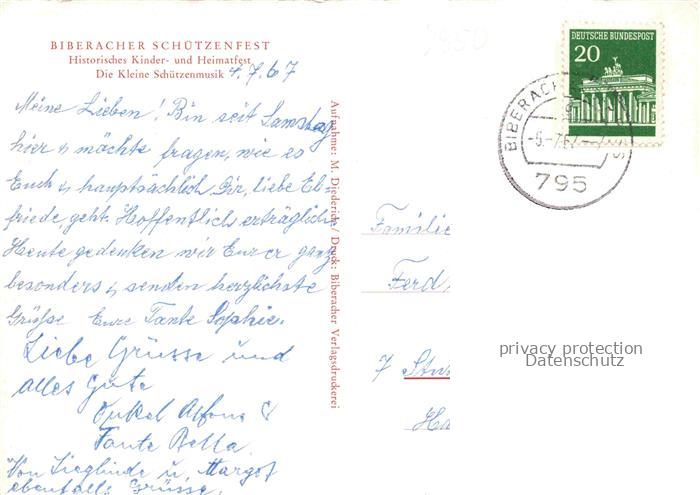 BIBERACHER SCHÜTZENFEST
Historisches Kinder- und Heimatfest
Die Kleine Schützenmusik 4.7.67
Meine Lieben! Bin seit Samstag
hier & möchte fragen, wie es
Euch & hauptsächlich Dir, liebe El-
friede geht. Hoffentlich erträglich.
Heute gedenken wir Eurer ganz
besonders & senden herzlichste
Grüße Eure Tante Sophie.
Liebe Grüsse und
alles Gute
Onkel Alfons &
Tante Bella
Von Sieglinde u. Margot
ebenfalls Grüsse.
Aufnahme: M. Diederich / Druck: Biberacher Verlagsdruckerei
DEUTSCHE BUNDESPOST
20
BIBERACH
-5.-7.67
795
Familie
Ferd
7 Stu
Ha
privacy protection
Datenschutz